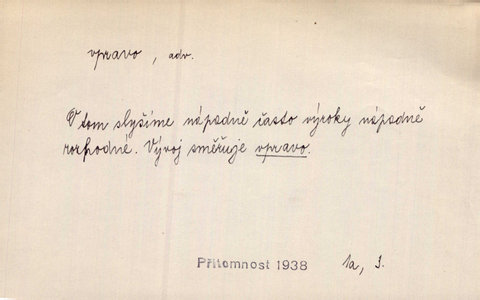 vpravo, adv.
V tom slyšíme nápadně často výroky nápadně
rozhodné. Vývoj směřuje vpravo.
Přítomnost 1938 1a, 3.